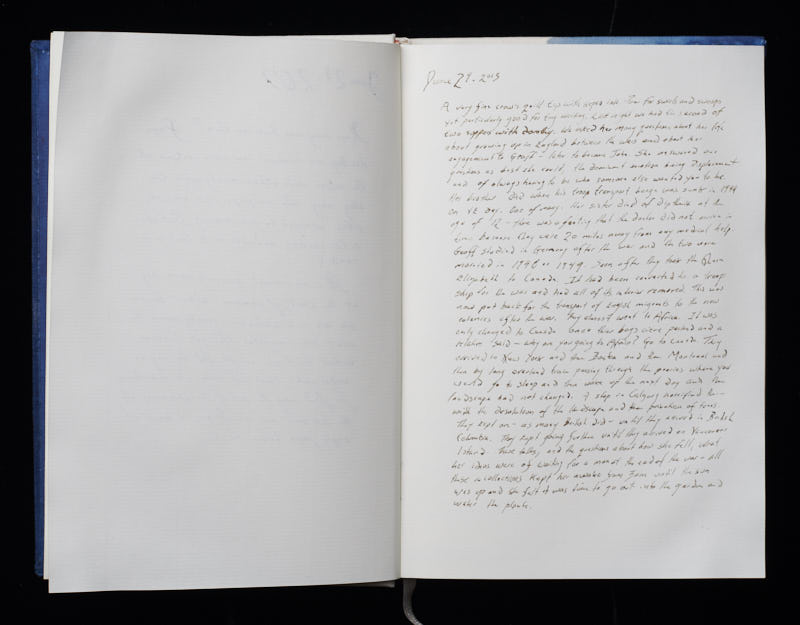 June 29, 2015
A very fine crow's quill tip with aged ink. Fun for swirls and swoops
yet particularly good for tiny writing. Last night we had the second of
two suppers with Dorothy. We asked her many questions about her life
about growing up in England between the wars and about her
engagement to Geoff - later to become John. She answered our
questions as best she could, the dominant emotion being Displacement
and of always having to be who someone else wanted you to be.
Her brother Died when his troop transport barge was sunk in 1944
on VE Day. One of many. Her sister Died of Diptheria at the
age of 12 - there was a feeling that the doctor did not arrive in
time because they were 20 miles away from any medical help.
Geoff studied in Germany after the war and the two were
married in 1948 or 1949. Soon after they took the Queen
Elizabeth to Canada. It had been converted to a troop
ship for the war and had all of its interior removed. This was
now put back for the transport of English migrants to the new
colonies after the war. They almost went to Africa. It was
only changed to Canada once their bags were packed and a
relative said - why are you going to Africa? Go to Canada. They
arrived in New York and then Boston and then Montreal and
then by long overland train passing through the praries where you
would go to sleep and then wake up the next Day and the
landscape had not changed. A stop in Calgary horrified them
with the desolation of the landscape and the of trees.
They kept on - as many British did - until they arrived in British
Columbia. They kept going further until they arrived on Vancouver
Island. These talks, and the questions about how she felt, what
her ideas were of waiting for a man at the end of the war - all
these recollections kept her awake from 3am until the sun
was up and she felt it was time to go out into the garden and
water the plants.